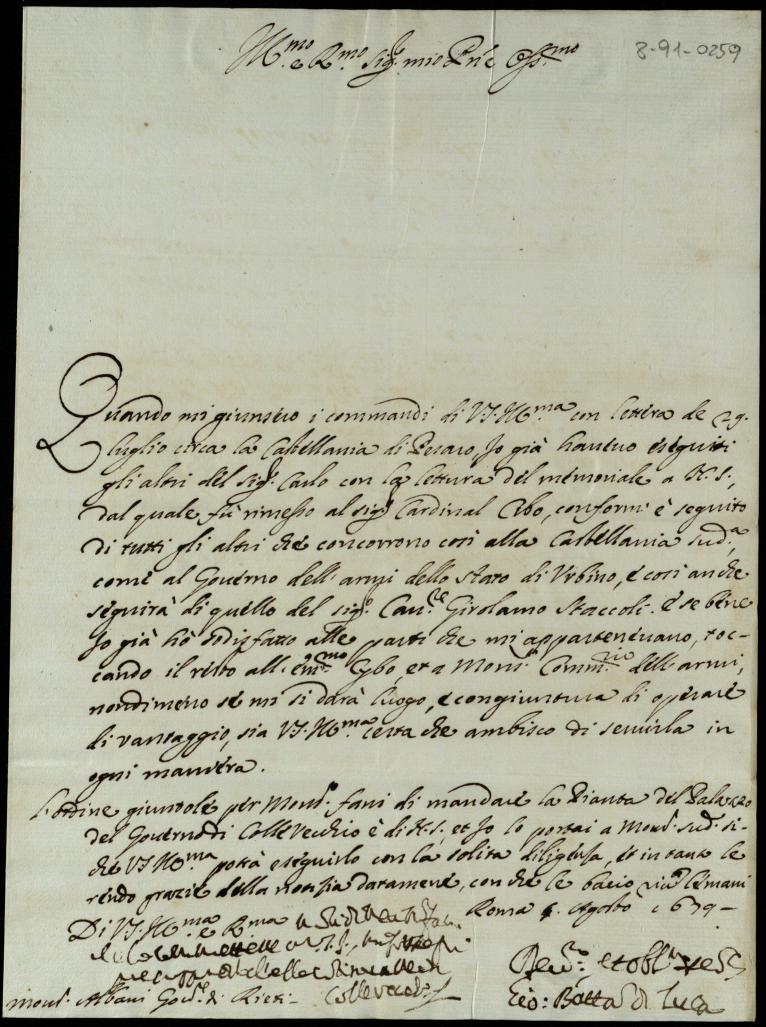 Ill.mo e R.mo Sig.r mio P.ne Oss.mo
8-91-0259
Quando mi giunsero i commandi di V.S. Ill.ma con lettera de 29.
luglio circa la Castellania di Pesaro, Io già haveuo eseguiti
gli altri del Sig.r Carlo con la lettura del memoriale a N.S.,
dal quale fù rimesso al sig.r Cardinal Cibo, conforme è seguito
di tutti gli altri che concorrono così alla Castellania sud.a,
come al Governo dell'armi dello stato di Vrbino, e così anche
seguirà di quello del sig.r Cau.re Girolamo Staccoli. e se bene
Io già hò sodisfatto alle parti che mi apparteneuano, toc-
cando il resto all'em.mo Cybo, et a Mons.r Comm.rio dell'armi,
nondimeno se mi si darà luogo, e congiuntura di operare
di vantaggio, sia V.S. Ill.ma certa che ambisco di seruirla in
ogni maniera.
L'ordine giuntole per Mons.r fani di mandare la Pianta del Palazzo
del Governo di Collevecchio è di N.S., et Io lo portai a Mons.r sud.o si-
che V.S. Ill.ma potrà eseguirlo con la solita diligenza, et in tanto le
rendo grazie della notizia datamene, con che le bacio le mani
Roma Agosto 1679
Di V.S. Ill.ma e R.ma
Collevecchi
Mons.r Albani Gov.re di Rieti
Dev.mo et obl.mo
Gio: Batta de Luca